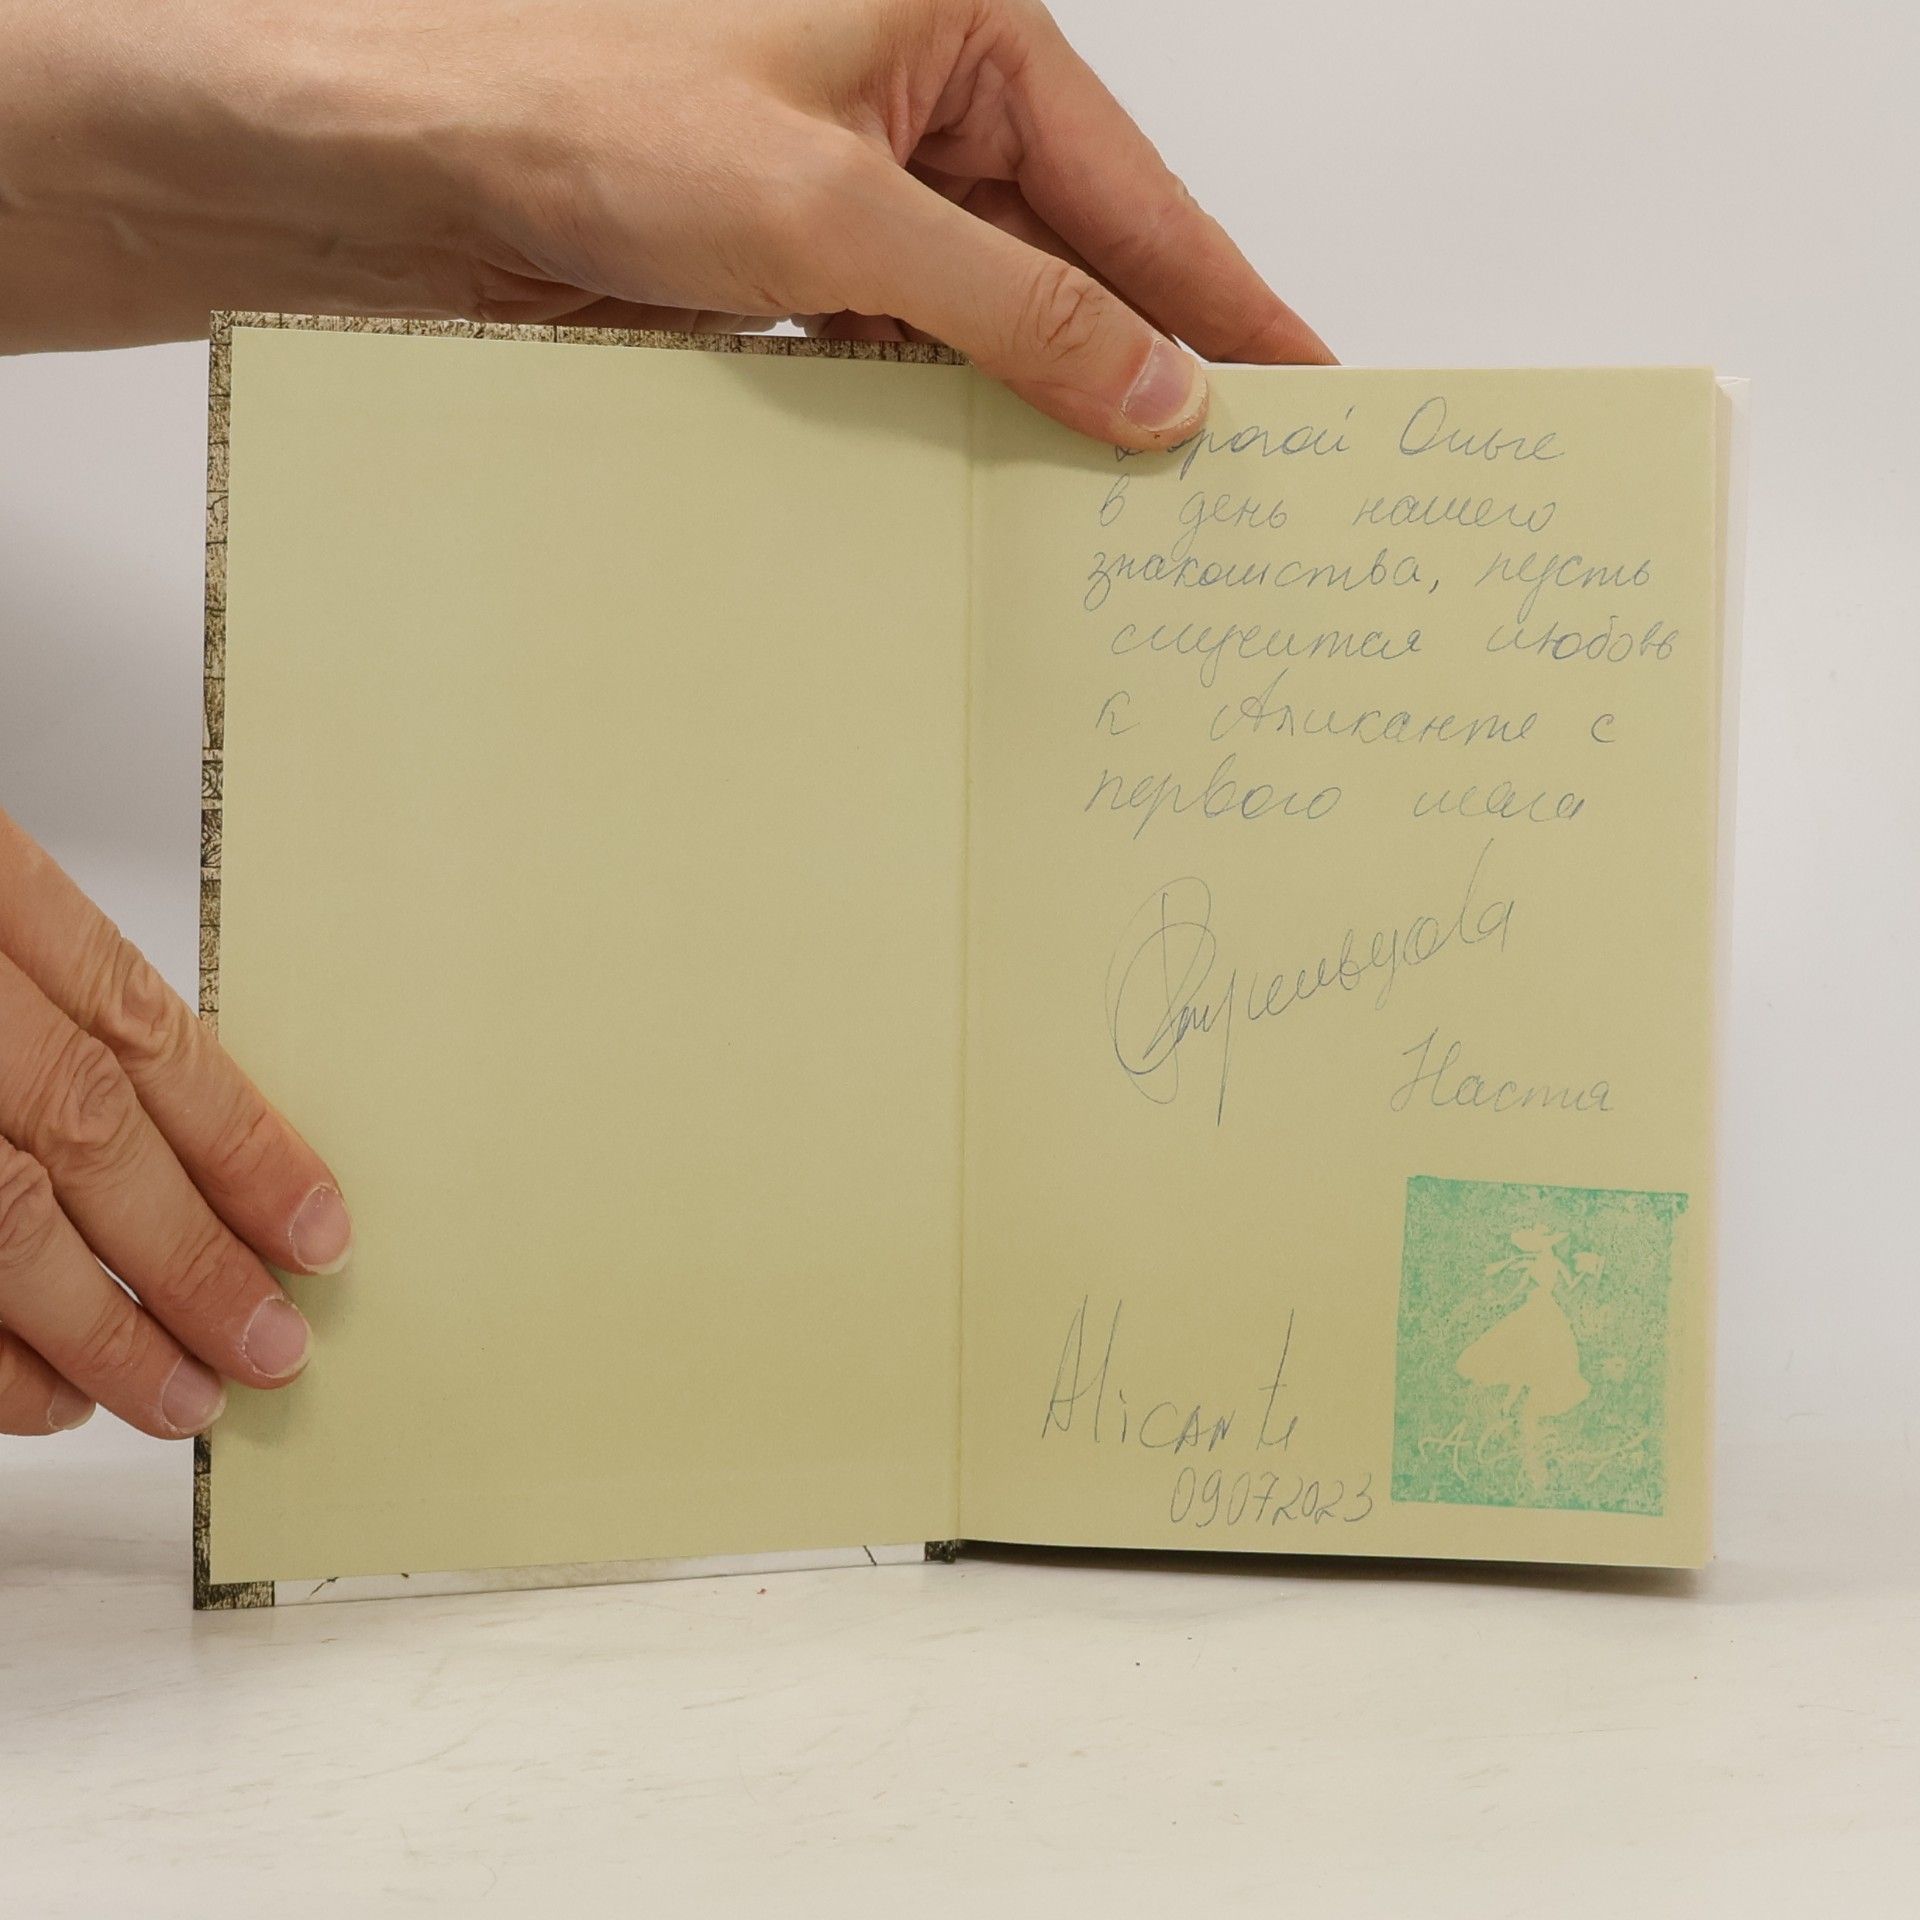 Дорогой Ольге
в день нашего
знакомства, пусть
случится любовь
к Аликанте с
первого шага
Настя
Alicante
09072023